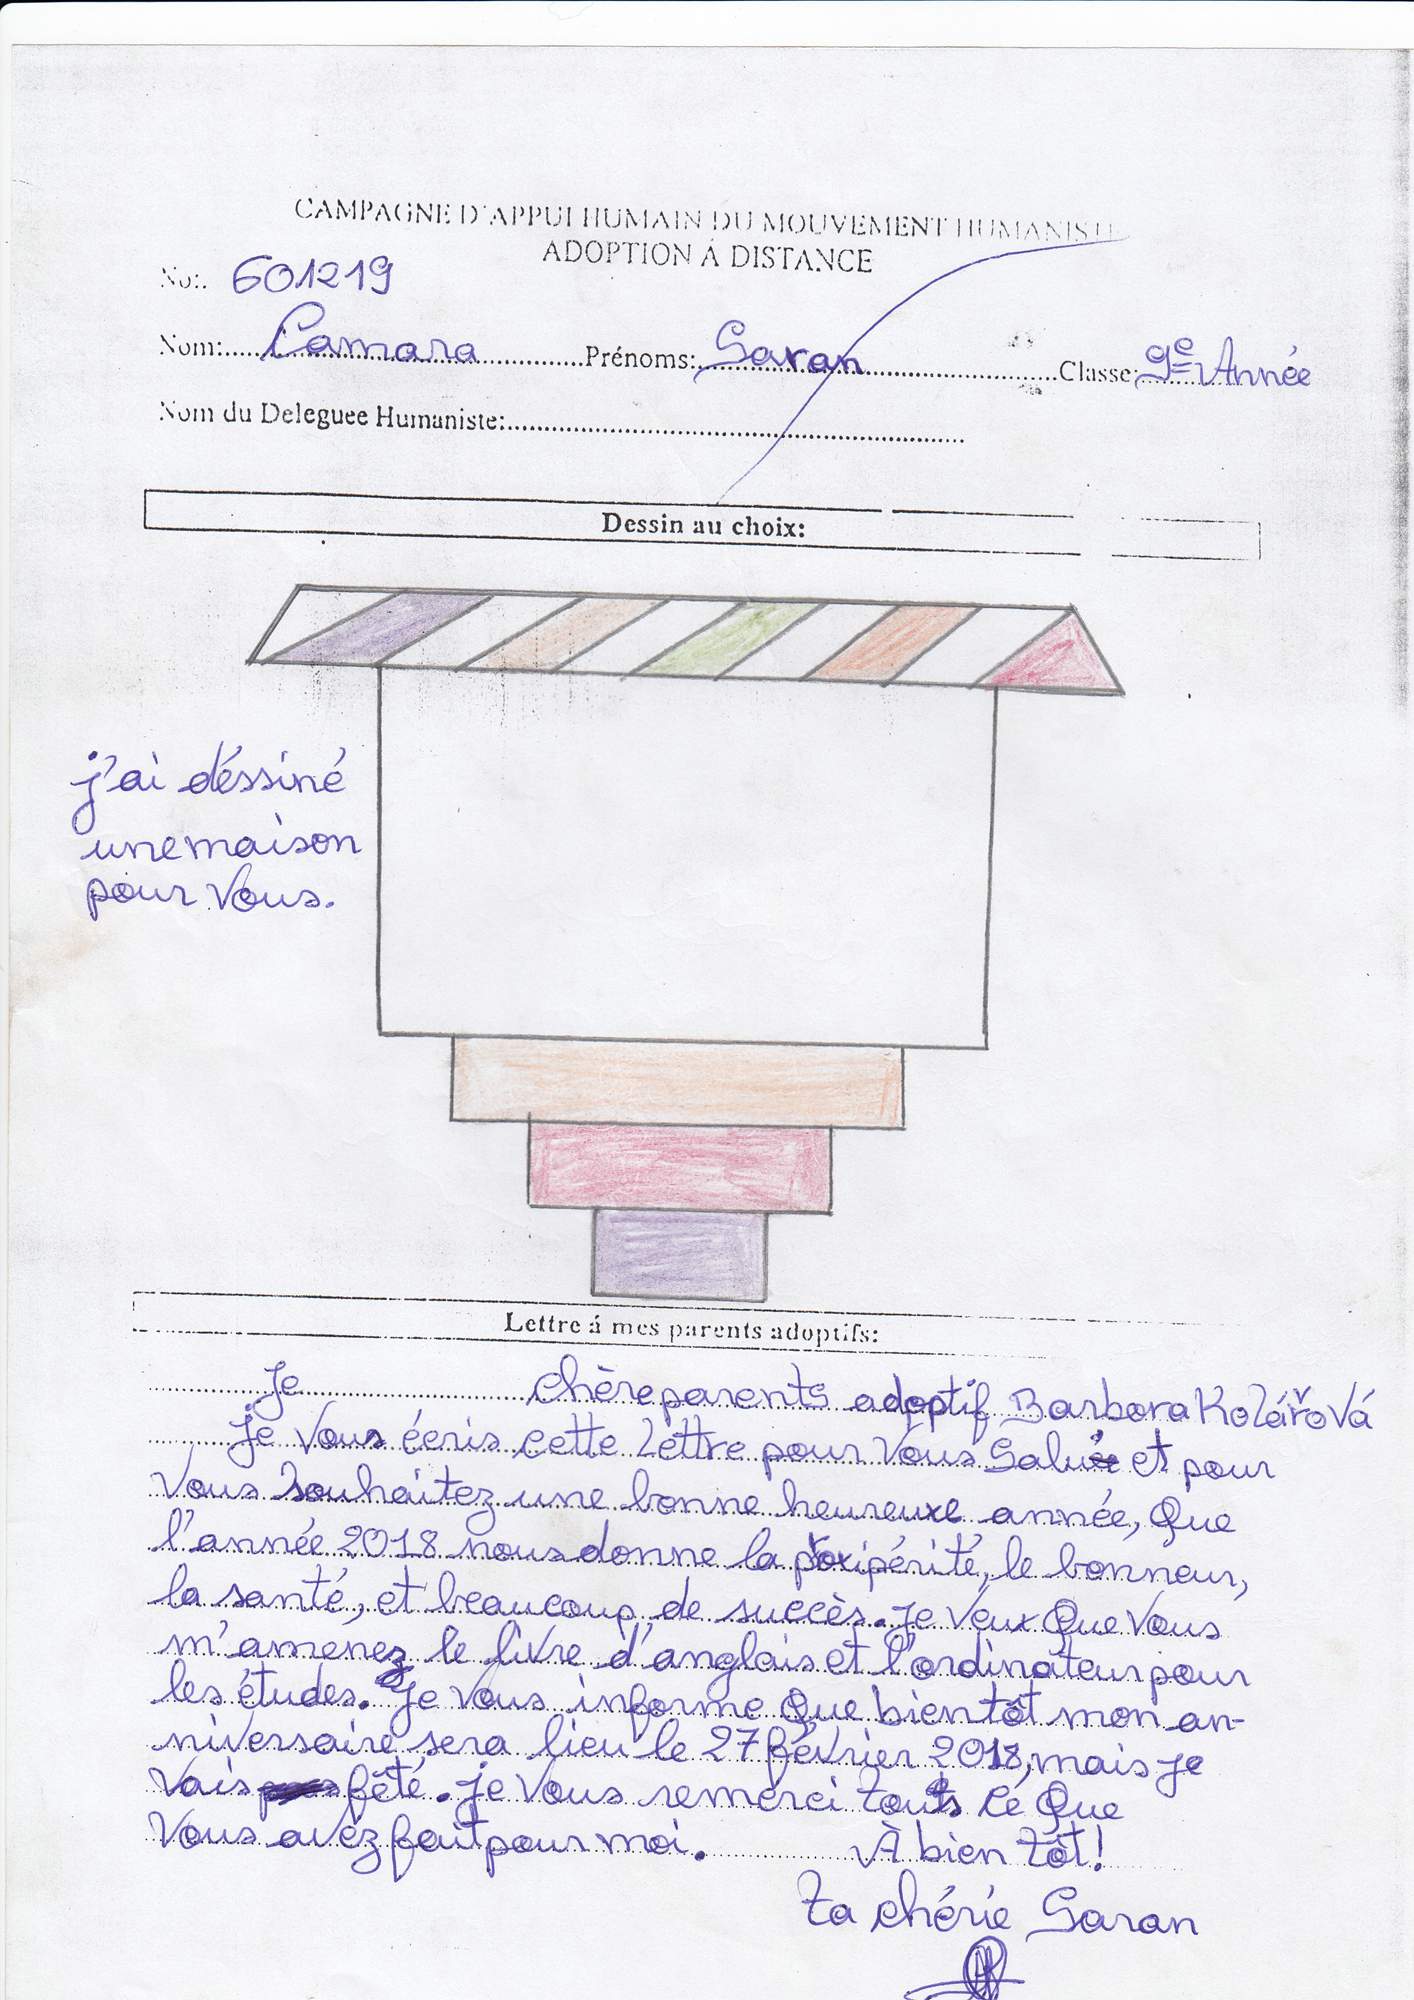 CAMPAGNE D'APPUI HUMAIN DU MOUVEMENT HUMANISTE
ADOPTION Á DISTANCE
No:. 601219
Nom:.....Camara.....Prénoms:.Saran.....Classe:9e Année
Nom du Deleguee Humaniste:.....
Dessin au choix:
j'ai déssiné
une maison
pour vous.
Lettre á mes parents adoptifs:
Je chère parents adoptif Barbora Kolářová
Je vous écris cette lettre pour vous Salué et pour
vous souhaitez une bonne heureuxe année, Que
l'année 2018 nous donne la, le bonheur,
la santé, et beaucoup de succès. je veux Que vous
m'amenez le livre d'anglais et l'ordinateur pour
les études. Je vous informe Que bientôt mon an-
niversaire sera lieu le 27 février 2018, mais je
vais fêté. je vous remerci touts cé Que
vous avez fait pour moi. À bien tôt!
ta chérie Saran